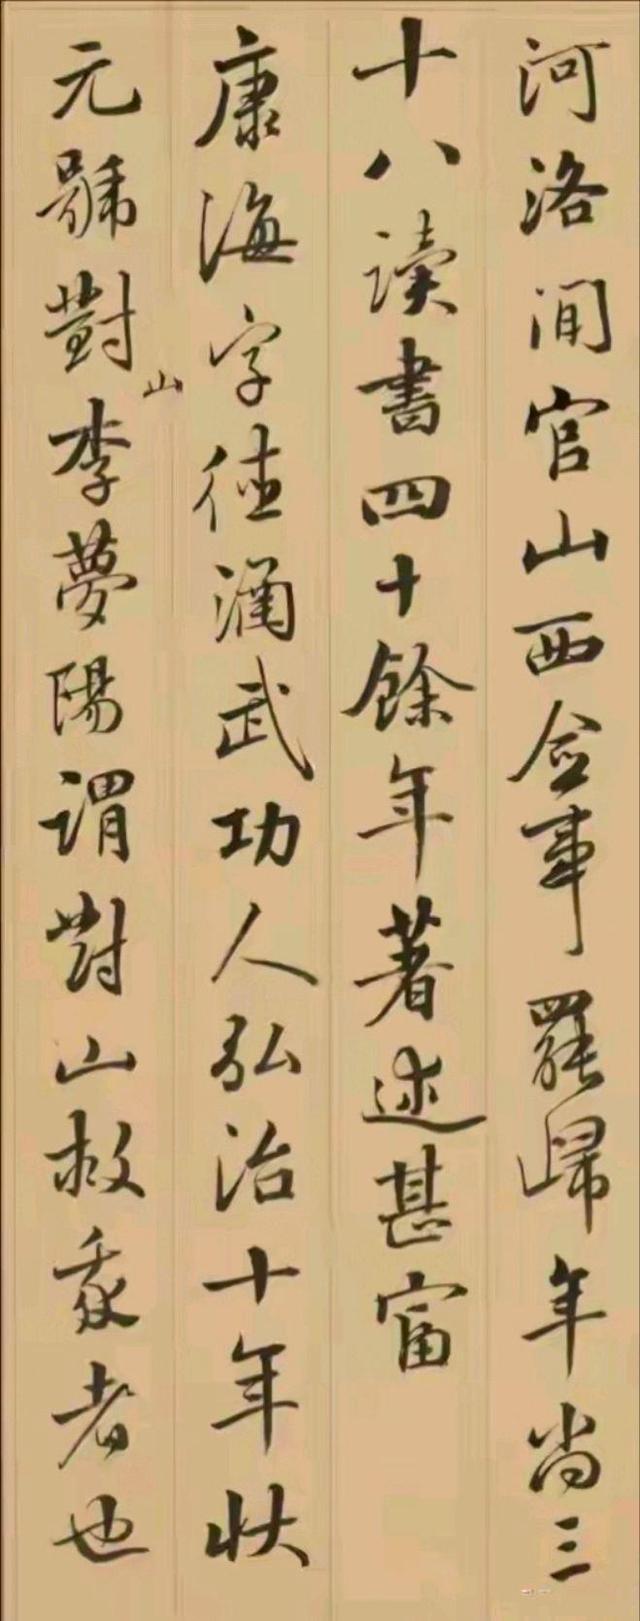 河洛間官山西僉事罷歸年尚三
十八讀書四十餘年著述甚富
康海字德涵武功人弘治十年狀
元號對山李夢陽謂對山救我者也